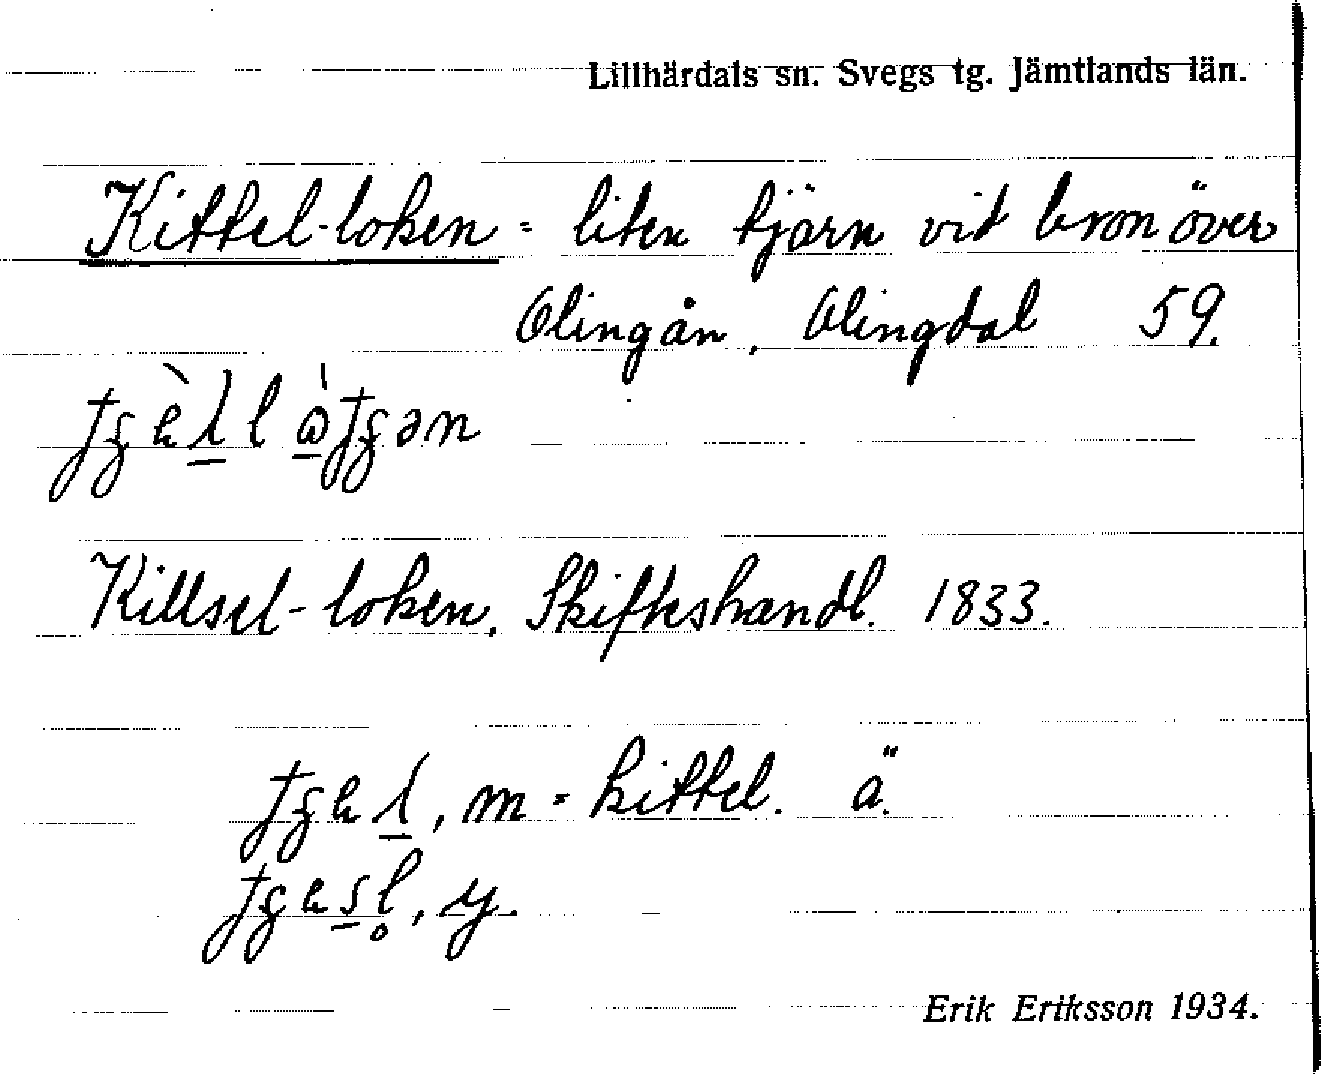 Lillhärdals sn. Svegs tg. Jämtlands län.
Kittel-loken = liten tjärn vid bron över
Olingån, Olingdal 59.
Killsel-loken. Skifteshandl. 1833.
, m = kittel. ä.
, y.
Erik Eriksson 1934.